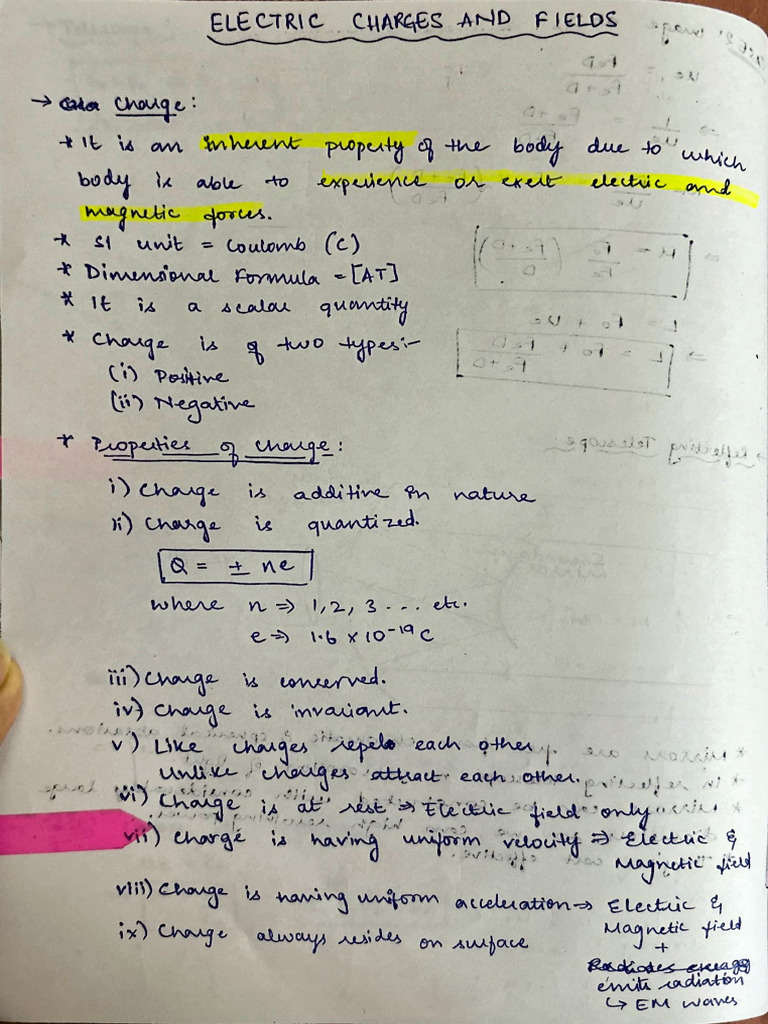 ELECTRIC CHARGES AND FIELDS
→ Charge:
* It is an inherent property of the body due to which
body is able to experience or exert electric and
magnetic forces.
* SI unit = Coulomb (C)
* Dimensional Formula = [AT]
* It is a scalar quantity
* Charge is of two types:-
(i) Positive
(ii) Negative
* Properties of charge:
i) Charge is additive in nature
ii) Charge is quantized.
Q = ± ne
where n ⇒ 1, 2, 3 ... etc.
e ⇒ 1.6 × 10⁻¹⁹ C
iii) Charge is conserved.
iv) Charge is invariant.
v) Like charges repel each other
Unlike charges attract each other.
vi) Charge is at rest ⇒ Electric field only
vii) Charge is having uniform velocity ⇒ Electric &
Magnetic field
viii) Charge is having uniform acceleration ⇒ Electric &
Magnetic field
+
ix) Charge always resides on surface
Radiates energy
emits radiation
↳ EM waves